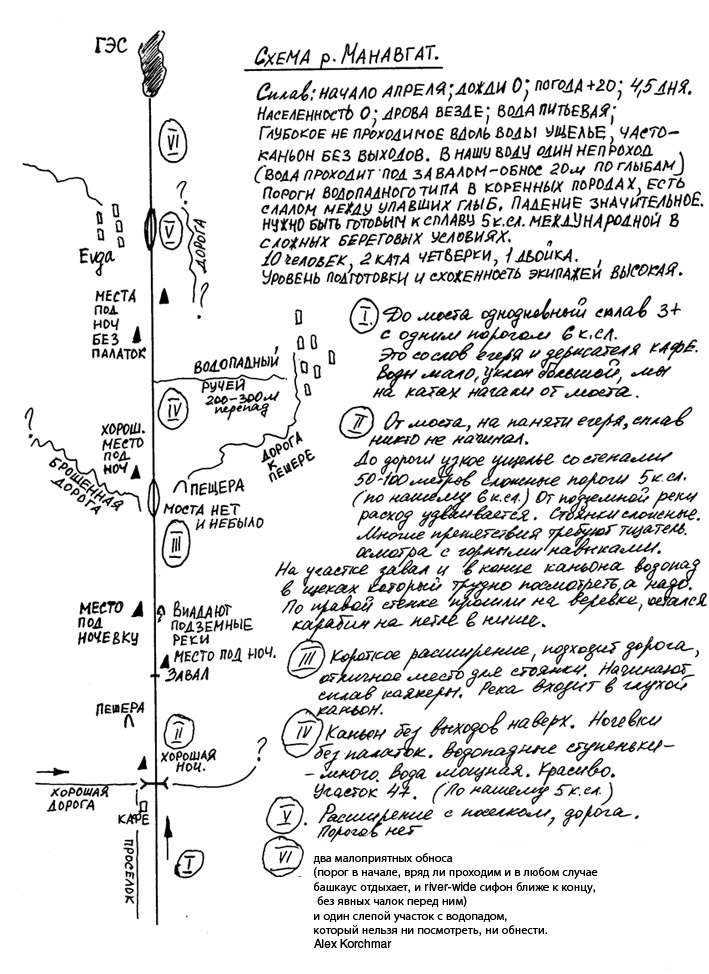 ГЭС
СХЕМА р. МАНАВГАТ.
Сплав: НАЧАЛО АПРЕЛЯ; ДОЖДИ 0; ПОГОДА +20; 4,5 ДНЯ.
НАСЕЛЕННОСТЬ 0; ДРОВА ВЕЗДЕ; ВОДА ПИТЬЕВАЯ;
ГЛУБОКОЕ НЕ ПРОХОДИМОЕ ВДОЛЬ ВОДЫ УЩЕЛЬЕ, ЧАСТО-
КАНЬОН БЕЗ ВЫХОДОВ. В НАШУ ВОДУ ОДИН НЕПРОХОД
(ВОДА ПРОХОДИТ ПОД ЗАВАЛОМ-ОБНОС 20М ПО ГЛЫБАМ)
ПОРОГИ ВОДОПАДНОГО ТИПА В КОРЕННЫХ ПОРОДАХ, ЕСТЬ
СЛАЛОМ МЕЖДУ УПАВШИХ ГЛЫБ. ПАДЕНИЕ ЗНАЧИТЕЛЬНОЕ.
НУЖНО БЫТЬ ГОТОВЫМ К СПЛАВУ 5 К.СЛ. МЕЖДУНАРОДНОЙ В
СЛОЖНЫХ БЕРЕГОВЫХ УСЛОВИЯХ.
10 ЧЕЛОВЕК, 2 КАТА ЧЕТВЕРКИ, 1 ДВОЙКА.
УРОВЕНЬ ПОДГОТОВКИ И СХОЖЕННОСТЬ ЭКИПАЖЕЙ ВЫСОКАЯ.
VI
?
V
ДОРОГА
Evga
?
МЕСТА
ПОД
НОЧ
БЕЗ
ПАЛАТОК
ВОДОПАДНЫЙ
РУЧЕЙ
200-300М
ПЕРЕПАД
IV
?
ХОРОШ.
МЕСТО
ПОД
НОЧ
ДОРОГА
К
ПЕЩЕРЕ
БРОШЕННАЯ
ДОРОГА
ПЕЩЕРА
МОСТА НЕТ
И НЕБЫЛО
III
МЕСТО
ПОД
НОЧЕВКУ
ВПАДАЮТ
ПОДЗЕМНЫЕ
РЕКИ
МЕСТО ПОД НОЧ.
ЗАВАЛ
ПЕЩЕРА
II
ХОРОШАЯ
НОЧ.
?
ХОРОШАЯ
ДОРОГА
КАФЕ
ПРОСЕЛОК
I
I. До моста однодневный сплав 3+
с одним порогом 6 к.сл.
Это со слов егеря и держателя КАФЕ.
Воды мало, уклон большой, мы
на катах начали от моста.
II От моста, на памяти егеря, сплав
никто не начинал.
До дороги узкое ущелье со стенами
50-100 метров сложные пороги 5 к.сл.
(по нашему 6 к.сл.) От подземной реки
расход удваивается. Стоянки сложные.
Многие препятствия требуют тщатель.
осмотра с горными навыками.
На участке завал и в конце каньона водопад
в щеках который трудно посмотреть, а надо.
По правой стенке прошли на веревке, остался
карабин на петле в нише.
III Короткое расширение, подходит дорога,
отличное место для стоянки. Начинают
сплав каякеры. Река входит в глухой
каньон.
IV Каньон без выходов наверх. Ночевки
без палаток. Водопадные ступеньки-
-много. Вода мощная. Красиво.
Участок 4+. (По нашему 5 к.сл.)
V. Расширение с поселком, дорога.
Порогов нет
VI два малоприятных обноса
(порог в начале, вряд ли проходим и в любом случае
башкаус отдыхает, и river-wide сифон ближе к концу,
без явных чалок перед ним)
и один слепой участок с водопадом,
который нельзя ни посмотреть, ни обнести.
Alex Korchmar